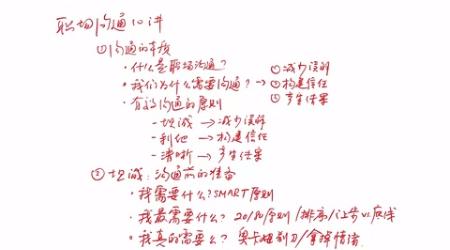 职场沟通10讲
①沟通的本质
·什么是职场沟通?
·我们为什么需要沟通? → ①减少误解
②构建信任
③产生结果
·有效沟通的原则
-坦诚 → 减少误解
-利他 → 构建信任
-清晰 → 产生结果
②坦诚:沟通前的准备
·我需要什么? SMART原则
·我最需要什么? 20/80原则/排序/上节以底线
·我真的需要么? 奥卡姆剃刀/拿掉情绪